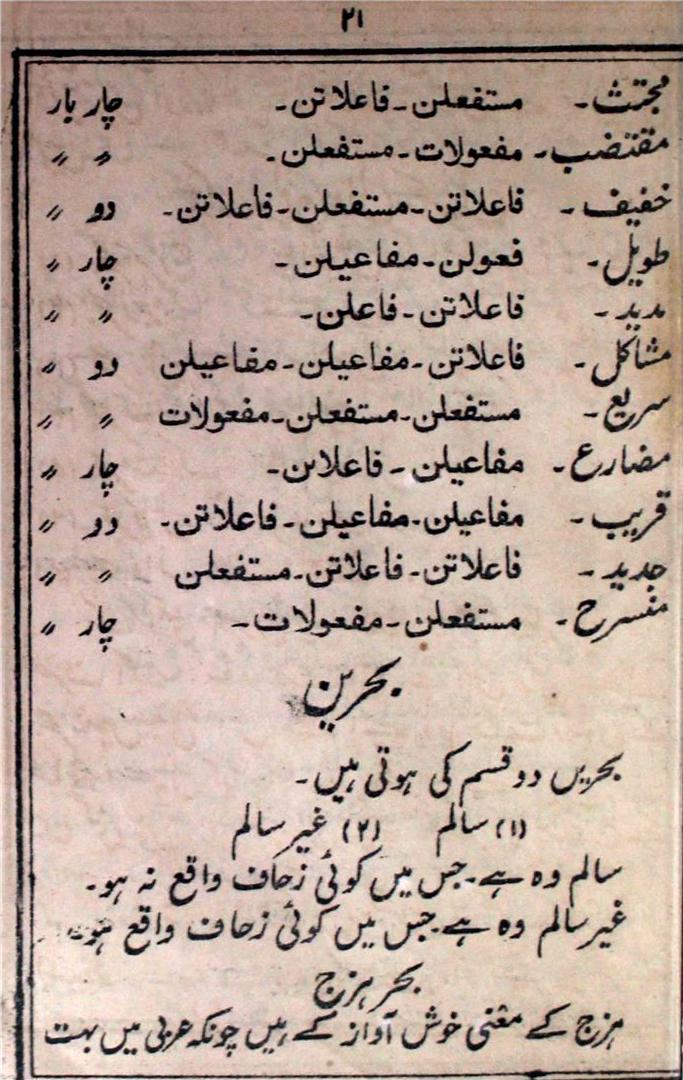 ۲۱
مجتث۔ مستفعلن۔فاعلاتن۔ چار بار
مقتضب۔ مفعولات۔مستفعلن۔ 〃 〃
خفیف۔ فاعلاتن۔مستفعلن۔فاعلاتن۔ دو 〃
طویل۔ فعولن۔مفاعیلن۔ چار 〃
مدید۔ فاعلاتن۔فاعلن۔ 〃 〃
مشاکل۔ فاعلاتن۔مفاعیلن۔مفاعیلن دو 〃
سریع۔ مستفعلن۔مستفعلن۔مفعولات 〃 〃
مضارع۔ مفاعیلن۔فاعلاتن۔ چار 〃
قریب۔ مفاعیلن۔مفاعیلن۔فاعلاتن۔ دو 〃
جدید۔ فاعلاتن۔فاعلاتن۔مستفعلن 〃 〃
منسرح۔ مستفعلن۔مفعولات۔ چار 〃
بحریں
بحریں دو قسم کی ہوتی ہیں۔
(۱) سالم (۲) غیر سالم
سالم وہ ہے۔جس میں کوئی زحاف واقع نہ ہو۔
غیر سالم وہ ہے۔جس میں کوئی زحاف واقع ہو۔
بحر ہزج
ہزج کے معنی خوش آواز کے ہیں چونکہ عربی میں بہت